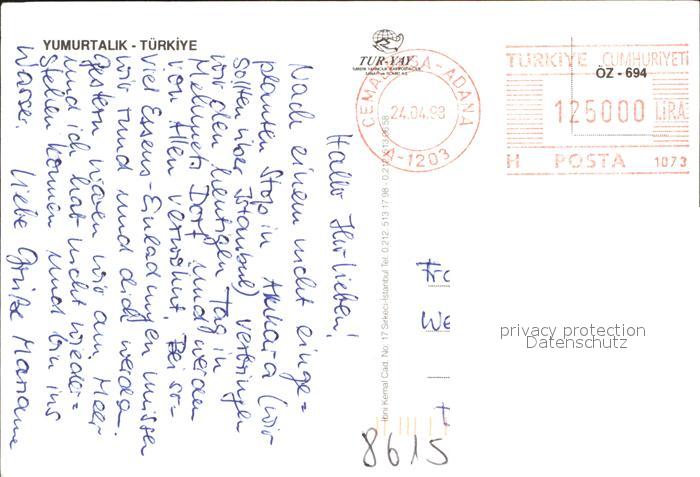 YUMURTALIK - TÜRKİYE
TUR-YAY
CEMALPAŞA-ADANA
24.04.98
A-1203
TÜRKİYE CUMHURİYETİ
ÖZ - 694
125000 LİRA
H POSTA 1073
Hallo Ihr Lieben!
Nach einem nicht einge=
planten Stop in Ankara (wir
sollten über Istanbul) verbringen
wir den heutigen Tag in
Mehmets Dorf und werden
von Allen verwöhnt. Bei so=
viel Essens-Einladungen müssen
wir rund und dick werden.
Gestern waren wir am Meer
und ich hab nicht wieder=
stehen können und bin ins
Wasser.
Liebe Grüße Mariann
Ibni Kemal Cad. No: 17 Sirkeci-İstanbul Tel: 0.212. 513 17 98 - 0.212.
Fra
We
8615
privacy protection
Datenschutz